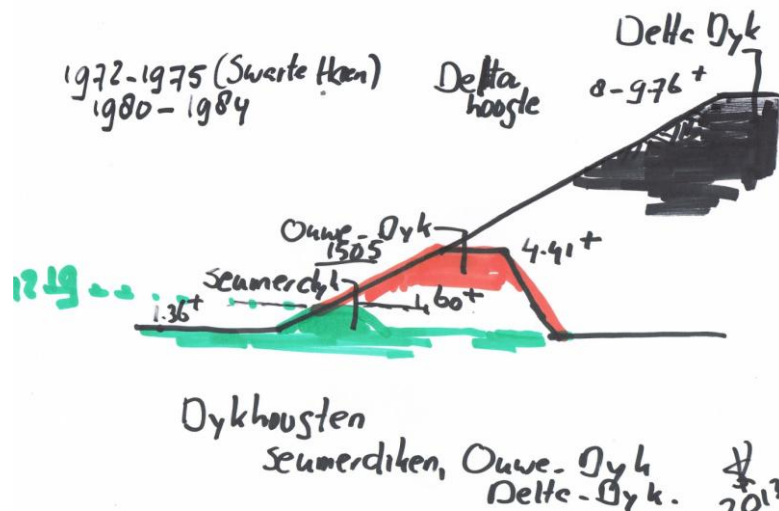 Delta Dyk
1972-1975 (Swarte Haen)
1980-1984
Delta
hoogte
8-976+
Ouwe-Dyk
1505
4.41+
Seumerdyk
1219
1.36+
1.60+
Dykhougten
Seumerdiken, Ouwe-Dyk
Delta-Dyk.
2013